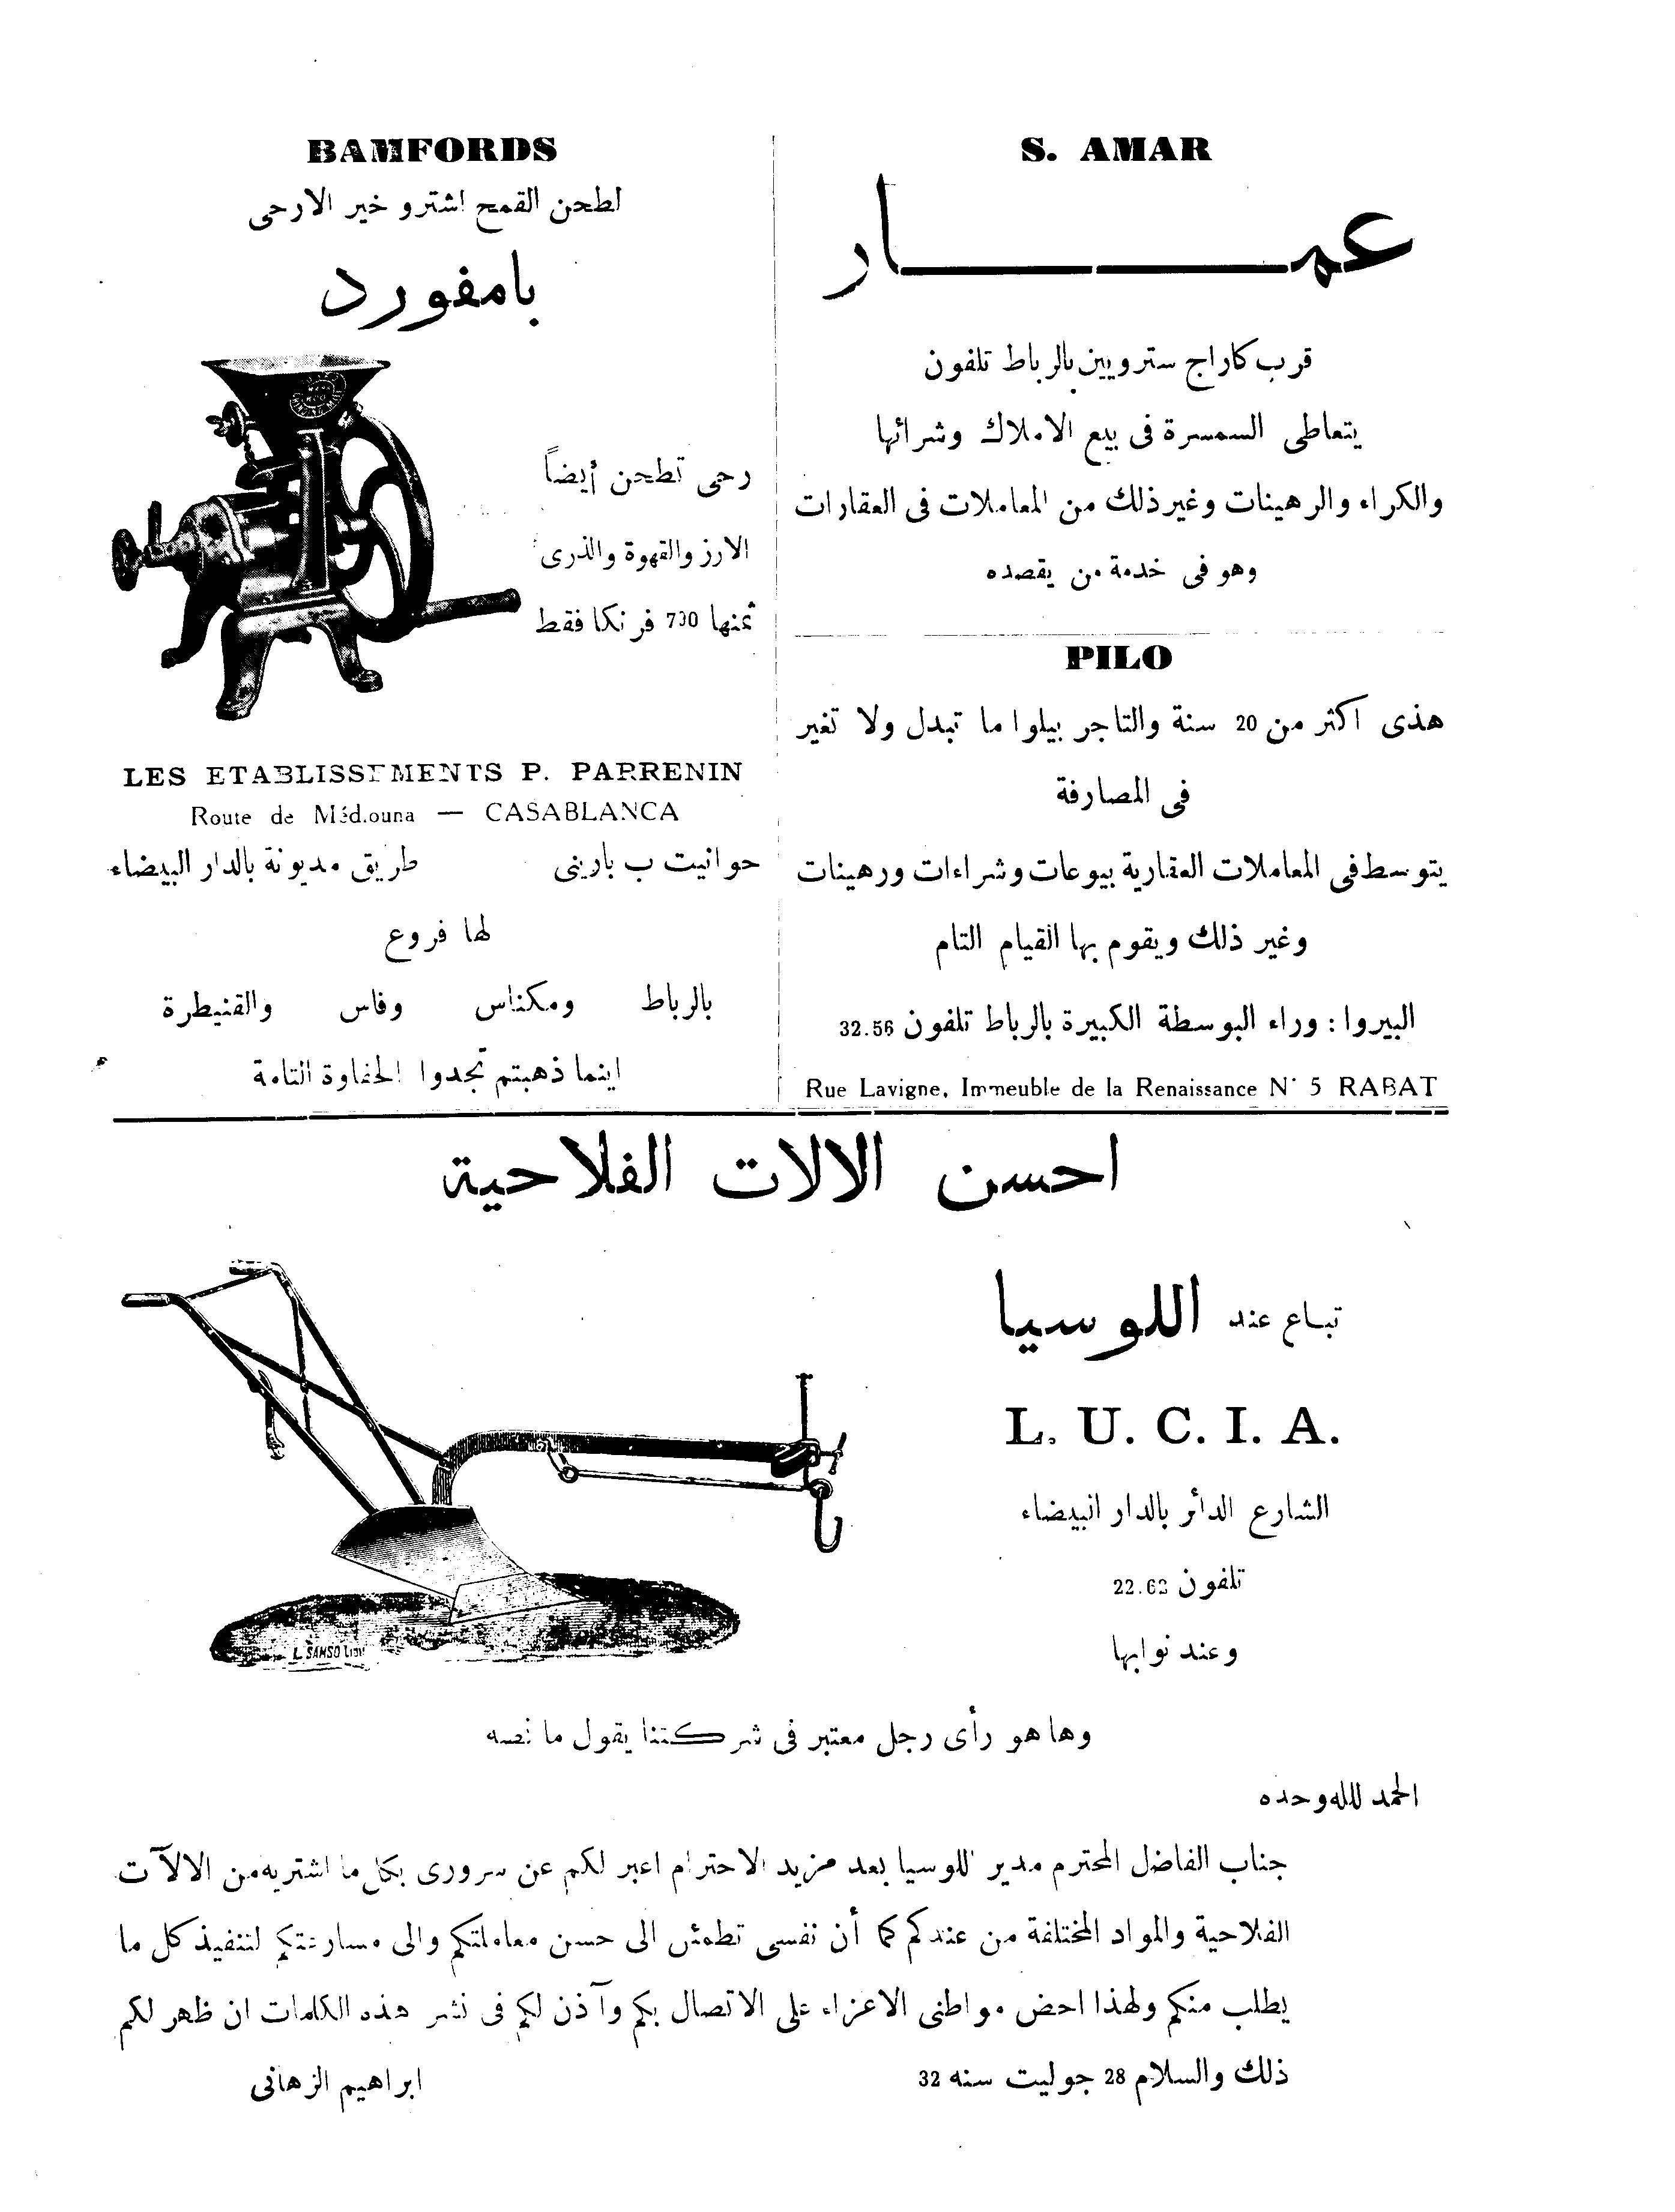 S. AMAR
عمار
قرب كاراج سترويين بالرباط تلفون
يتعاطى السمسرة فى بيع الاملاك وشرائها
والكراء والرهينات وغير ذلك من المعاملات فى العقارات
وهو فى خدمة من يقصده
PILO
هذى اكثر من 20 سنة والتاجر بيلوا ما تبدل ولا تغير
فى المصارفة
يتوسط فى المعاملات العقارية بيوعات وشراءات ورهينات
وغير ذلك ويقوم بها القيام التام
البيروا : وراء البوسطة الكبيرة بالرباط تلفون 32.56
Rue Lavigne, Immeuble de la Renaissance N° 5 RABAT
BAMFORDS
لطحن القمح اشترو خير الارحى
بامفورد
رحى تطحن أيضاً
الارز والقهوة والذرى
ثمنها 700 فرنكا فقط
LES ETABLISSEMENTS P. PARRENIN
Route de Médouna — CASABLANCA
حوانيت ب بارينى طريق مديونة بالدار البيضاء
لها فروع
بالرباط ومكناس وفاس والقنيطرة
اينما ذهبتم تجدوا الحفاوة التامة
احسن الالات الفلاحية
تباع عند اللوسيا
L. U. C. I. A.
الشارع الدائر بالدار البيضاء
تلفون 22.63
وعند نوابها
L. SAMSO
وها هو رأى رجل معتبر فى شركتنا يقول ما نصه
الحمد لله وحده
جناب الفاضل المحترم مدير اللوسيا بعد مزيد الاحترام اعبر لكم عن سرورى بكل ما اشتريه من الالآت
الفلاحية والمواد المختلفة من عندكم كما أن نفسى تطمئن الى حسن معاملتكم والى مسارعتكم لتنفيذ كل ما
يطلب منكم ولهذا احض مواطنى الاعزاء على الاتصال بكم وآذن لكم فى نشر هذه الكلمات ان ظهر لكم
ذلك والسلام 28 جوليت سنه 32 ابراهيم الزهانى